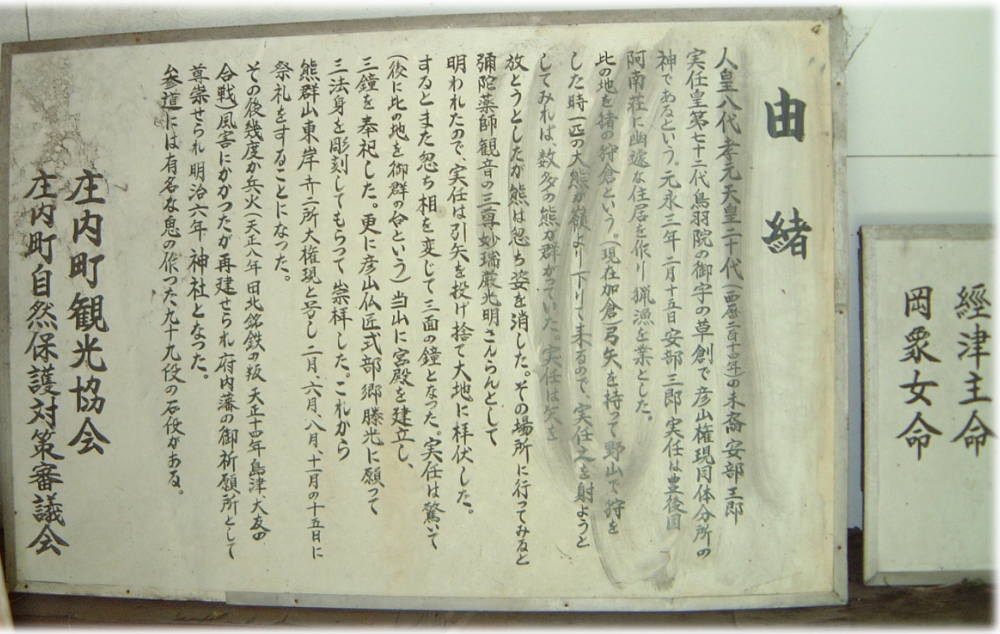 由緒
人皇八代孝元天皇二十代(西暦二百十四年)の末裔安部三郎
実任皇第七十二代鳥羽院の御宇の草創で彦山権現同体分所の
神であるという。元永三年二月十五日安部三郎実任は豊後国
阿南荘に幽邃な住居を作り猟漁を業とした。
此の地を猪の狩倉という。(現在加倉)弓矢を持って野山で狩を
した時一匹の大熊が嶺より下りて来るので、実任之を射ようと
してみれば、数多の熊が群がっていた。実任は矢を
放とうとしたが熊は忽ち姿を消した。その場所に行ってみると
彌陀薬師観音の三尊妙瑞厳光明さんらんとして
明われたので、実任は引矢を投げ捨て大地に拝伏した。
するとまた忽ち相を変じて三面の鐘となった。実任は驚いて
(後に此の地を御群の谷という)当山に宮殿を建立し、
三鐘を奉祀した。更に彦山仏匠式部郷勝光に願って
三法身を彫刻してもらって崇拝した。これから
熊群山東岸寺二所大権現と号し二月、六月、八月、十一月の十五日に
祭礼をすることになった。
その後幾度か兵火(天正八年田北紹鉄の叛、天正十四年島津大友の
合戦)風害にかかつたが再建せられ府内藩の御祈願所として
尊崇せられ明治六年神社となった。
参道には有名な鬼の作った九十九段の石段がある。
庄内町観光協会
庄内町自然保護対策審議会
經津主命
岡象女命